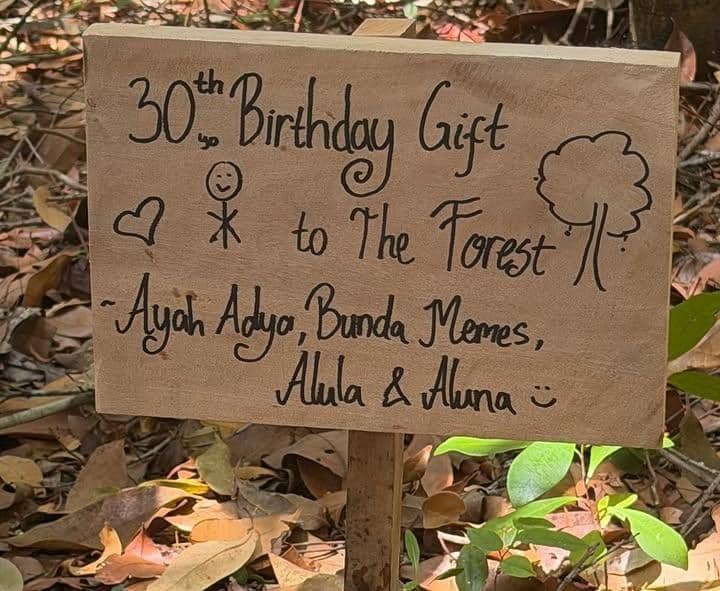 30th Birthday Gift
to The Forest
~Ayah Adya, Bunda Memes,
Alula & Aluna